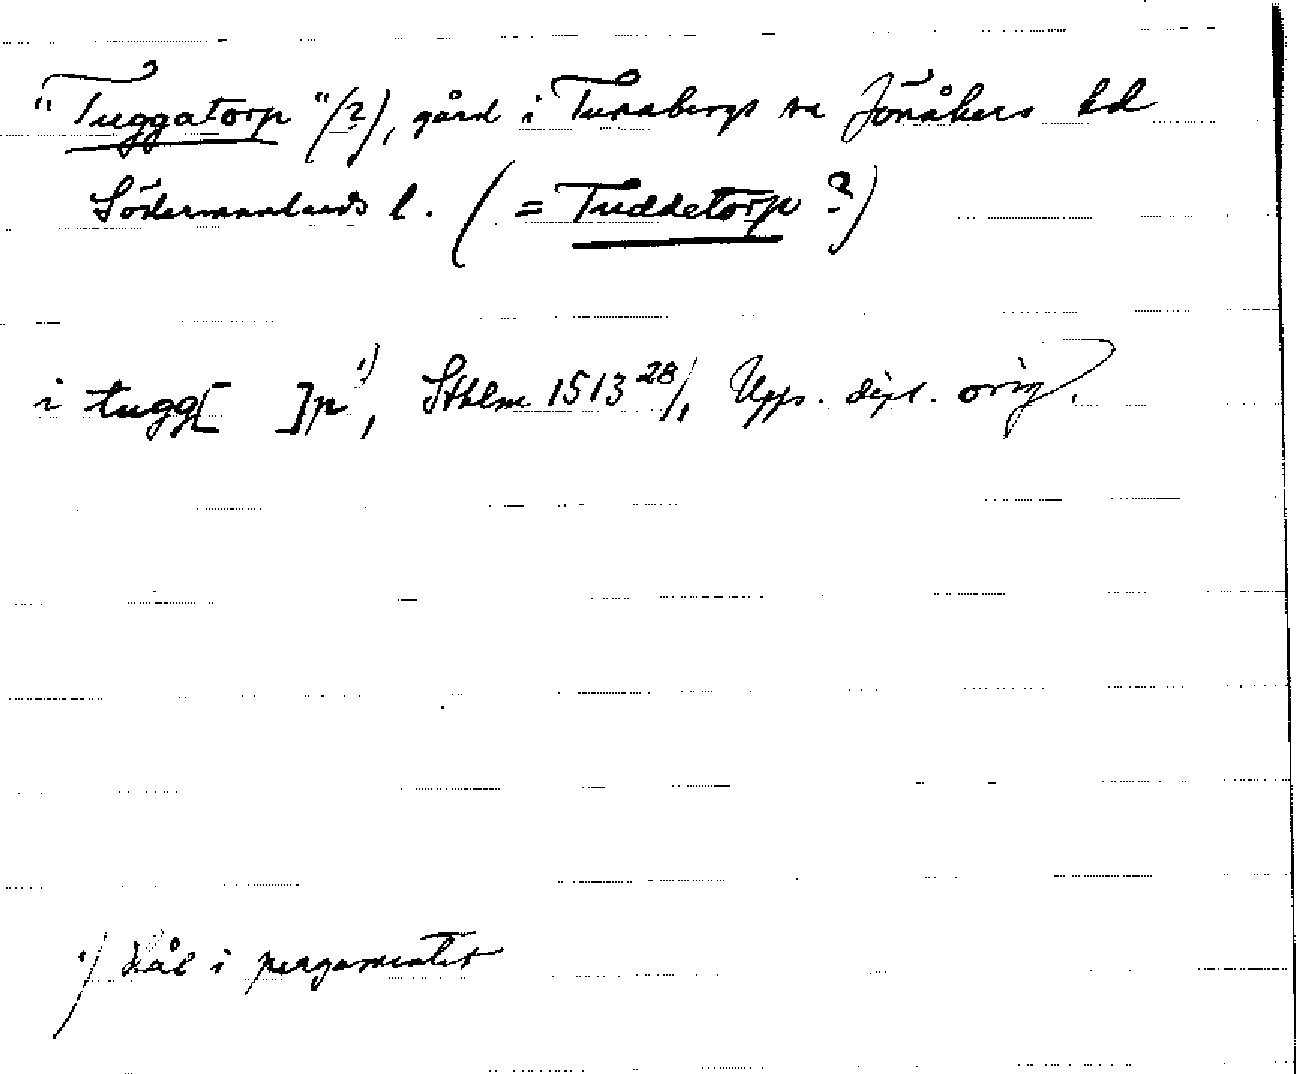 "Tuggatorp"(?), gård i Tunabergs sn Jönåkers hd
Södermanlands l. (= Tuddetorp?)
i tugg[ ]p 1), Sthlm 1513 28/, Upps. dipl. orig.
1) Hål i pergamentet